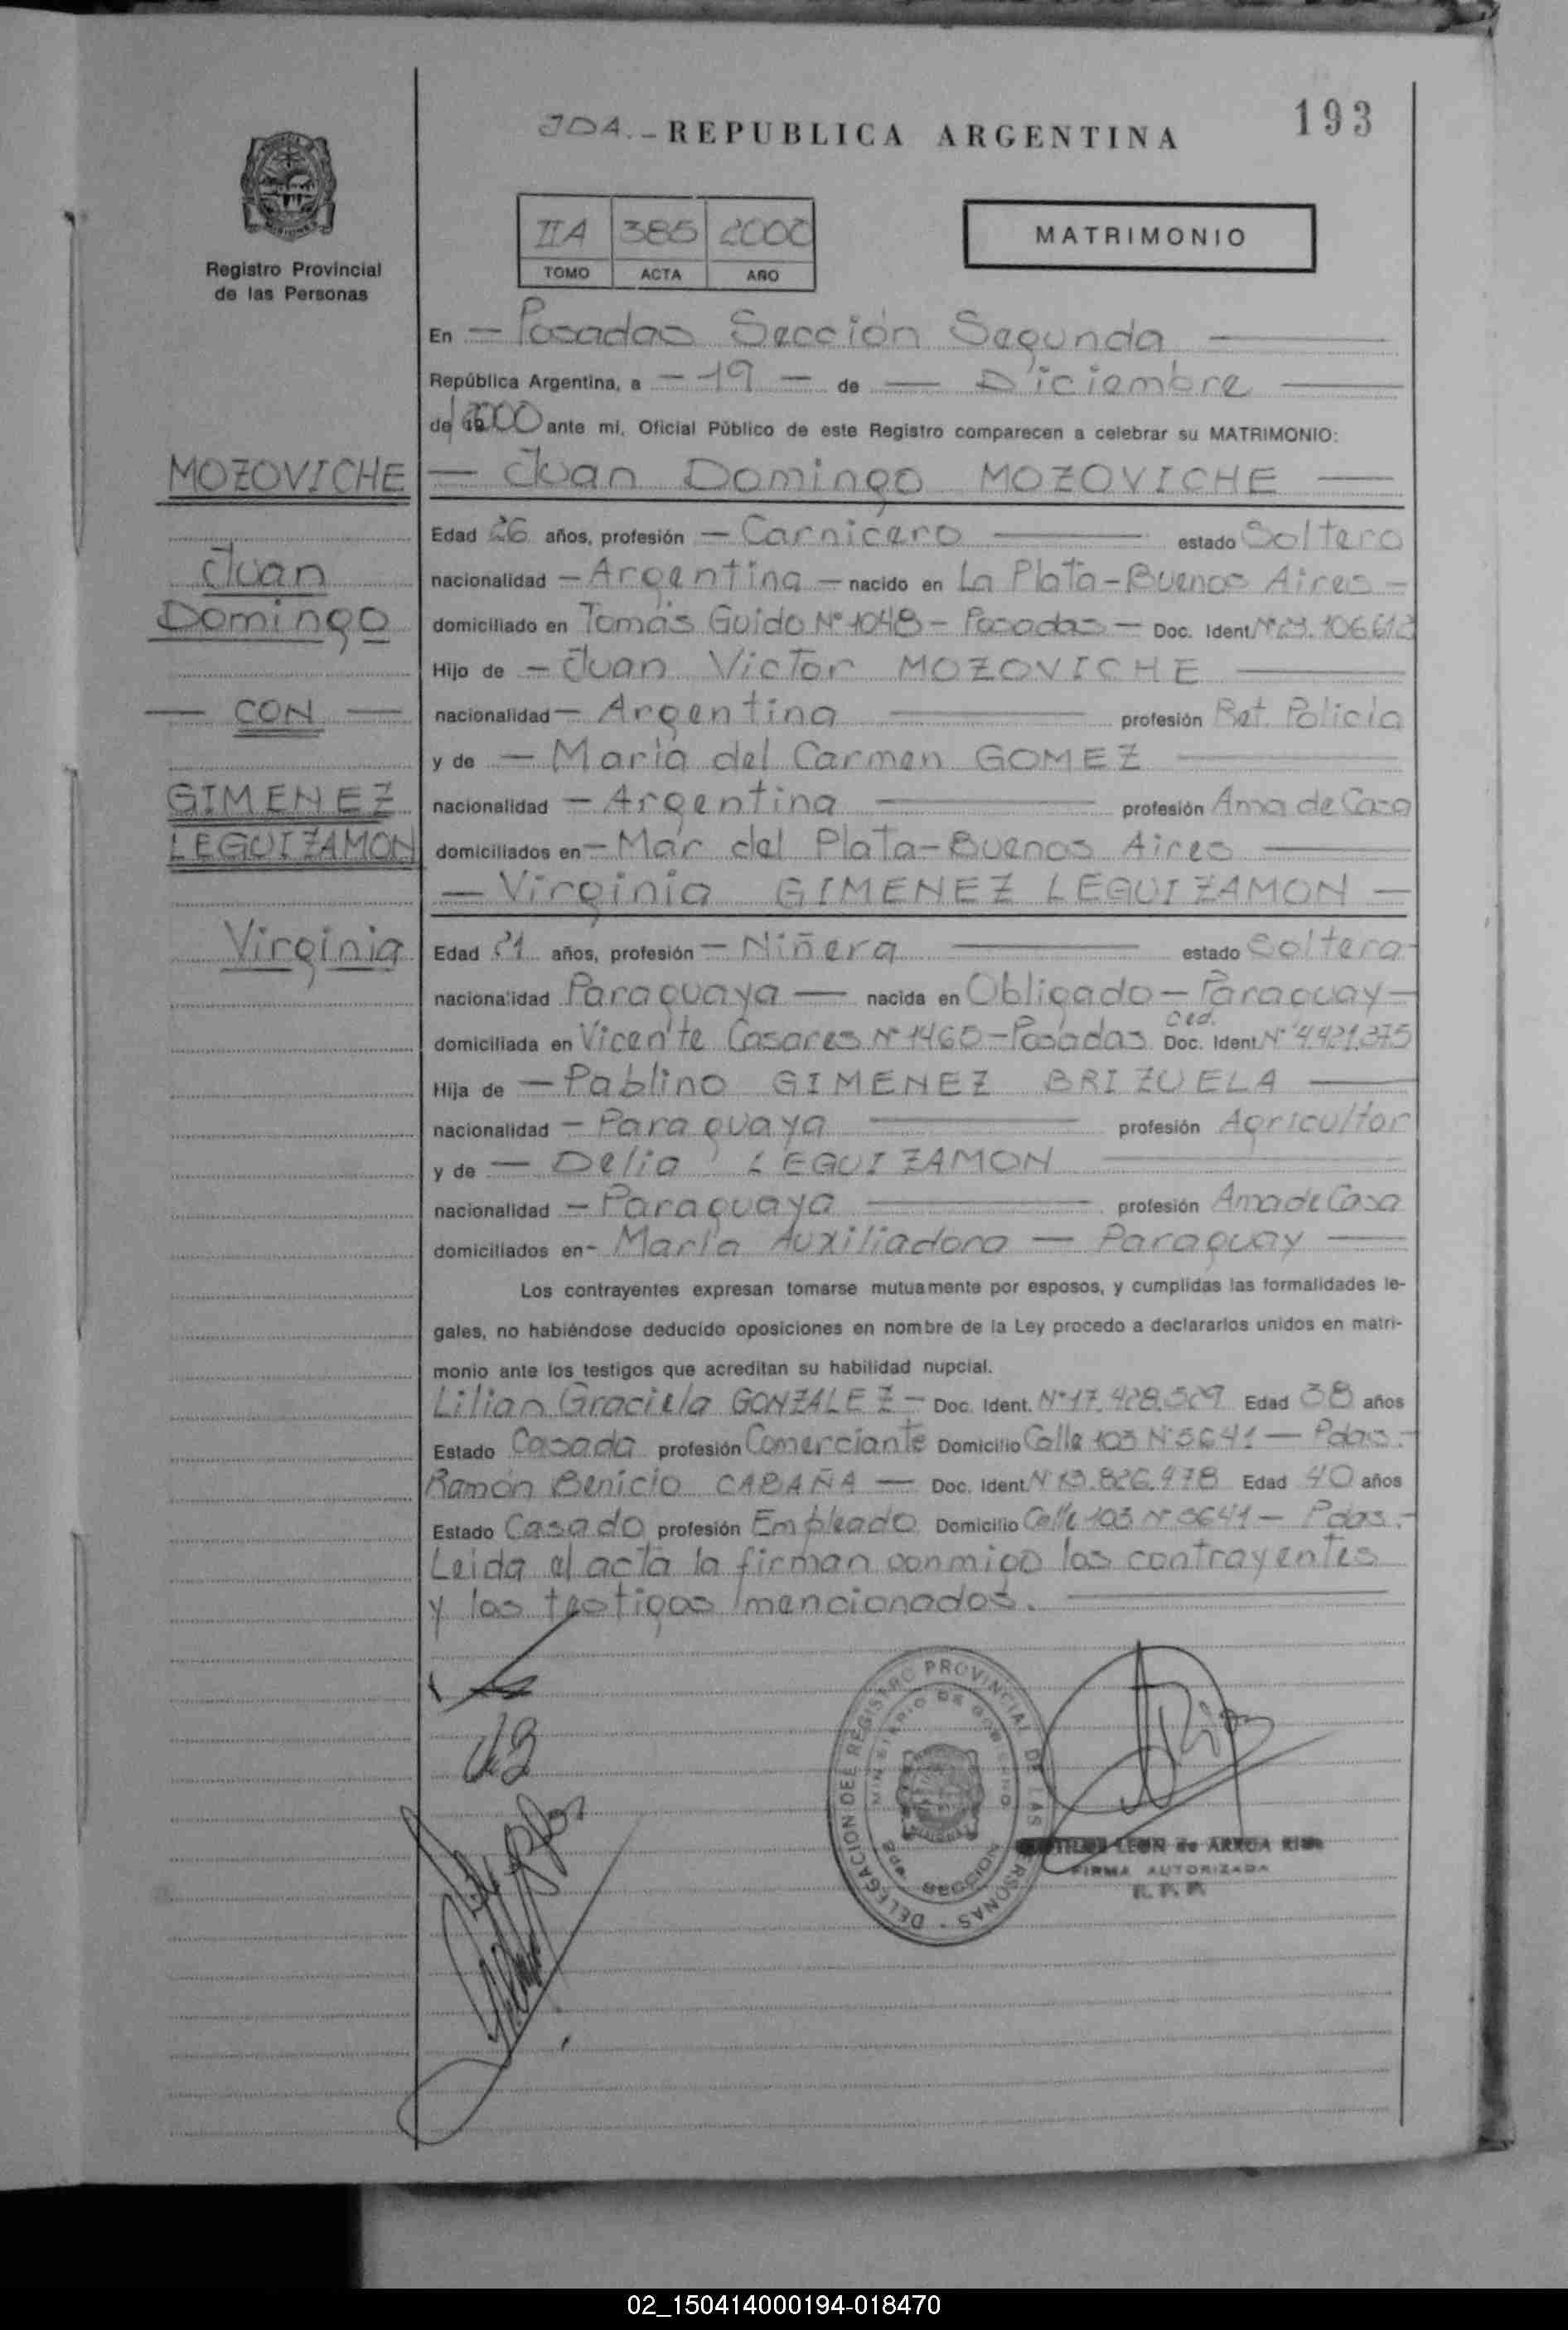 JDA.- REPUBLICA ARGENTINA
193
IIA 385 2000
TOMO ACTA AÑO
MATRIMONIO
Registro Provincial
de las Personas
En — Posadas Sección Segunda —
República Argentina, a — 19 — de — Diciembre —
de 2000 ante mí, Oficial Público de este Registro comparecen a celebrar su MATRIMONIO:
MOZOVICHE
Juan
Domingo
— CON —
GIMENEZ
LEGUIZAMON
Virginia
— Juan Domingo MOZOVICHE —
Edad 26 años, profesión — Carnicero — estado Soltero
nacionalidad — Argentina — nacido en La Plata - Buenos Aires —
domiciliado en Tomás Guido Nº 1048 - Posadas — Doc. Ident. Nº
Hijo de — Juan Victor MOZOVICHE —
nacionalidad — Argentina — profesión Ret. Policia
y de — Maria del Carmen GOMEZ —
nacionalidad — Argentina — profesión Ama de Casa
domiciliados en — Mar del Plata - Buenos Aires —
— Virginia GIMENEZ LEGUIZAMON —
Edad 21 años, profesión — Niñera — estado Soltera
nacionalidad Paraguaya — nacida en Obligado — Paraguay —
domiciliada en Vicente Casares Nº 1460 - Posadas Ced. Doc. Ident. Nº 4.421.375
Hija de — Pablino GIMENEZ BRIZUELA —
nacionalidad — Paraguaya — profesión Agricultor
y de — Delia LEGUIZAMON —
nacionalidad — Paraguaya — profesión Ama de Casa
domiciliados en - María Auxiliadora — Paraguay —
Los contrayentes expresan tomarse mutuamente por esposos, y cumplidas las formalidades le-
gales, no habiéndose deducido oposiciones en nombre de la Ley procedo a declararlos unidos en matri-
monio ante los testigos que acreditan su habilidad nupcial.
Lilian Graciela GONZALEZ — Doc. Ident. Nº 17.428.529 Edad 38 años
Estado Casada profesión Comerciante Domicilio Calle 103 Nº 5641 — Pdas.-
Ramón Benicio CABAÑA — Doc. Ident. Nº 13.826.978 Edad 40 años
Estado Casado profesión Empleado Domicilio Calle 103 Nº 5641 — Pdas.-
Leida el acta la firman conmigo los contrayentes
y los testigos mencionados. —
DELEGACION DEL REGISTRO PROVINCIAL DE LAS PERSONAS
MINISTERIO DE GOBIERNO
2da. SECCION
LEON de ARRUA RIOS
FIRMA AUTORIZADA
R. P. P.
02_150414000194-018470